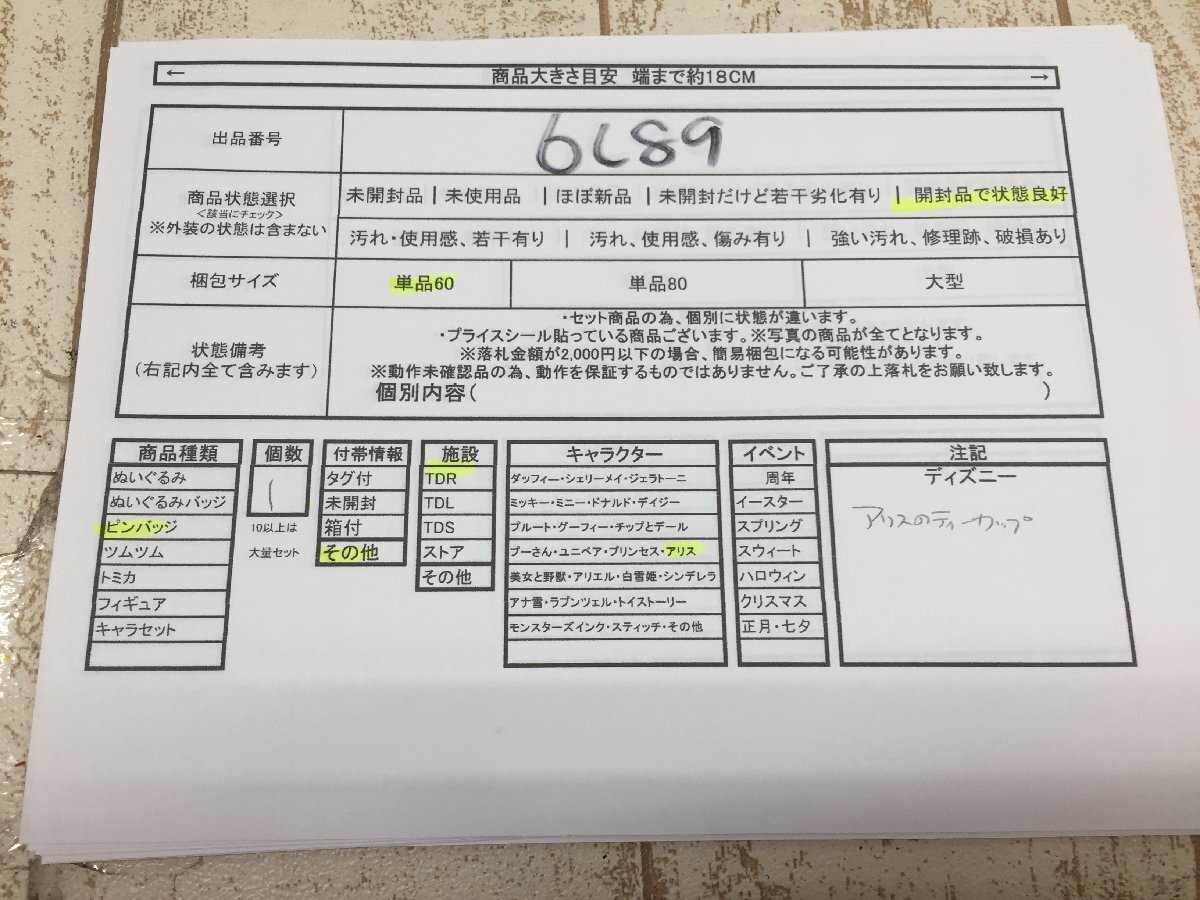 ← 商品大きさ目安 端まで約18CM →
出品番号 6L89
商品状態選択
<該当にチェック>
※外装の状態は含まない
未開封品 | 未使用品 | ほぼ新品 | 未開封だけど若干劣化有り | 開封品で状態良好
汚れ・使用感、若干有り | 汚れ、使用感、傷み有り | 強い汚れ、修理跡、破損あり
梱包サイズ 単品60 単品80 大型
状態備考
(右記内全て含みます)
・セット商品の為、個別に状態が違います。
・プライスシール貼っている商品ございます。※写真の商品が全てとなります。
※落札金額が2,000円以下の場合、簡易梱包になる可能性があります。
※動作未確認品の為、動作を保証するものではありません。ご了承の上落札をお願い致します。
個別内容( )
商品種類
ぬいぐるみ
ぬいぐるみバッジ
ピンバッジ
ツムツム
トミカ
フィギュア
キャラセット
個数
1
10以上は
大量セット
付帯情報
タグ付
未開封
箱付
その他
施設
TDR
TDL
TDS
ストア
その他
キャラクター
ダッフィー・シェリーメイ・ジェラトーニ
ミッキー・ミニー・ドナルド・デイジー
プルート・グーフィー・チップとデール
プーさん・ユニベア・プリンセス・アリス
美女と野獣・アリエル・白雪姫・シンデレラ
アナ雪・ラプンツェル・トイストーリー
モンスターズインク・スティッチ・その他
イベント
周年
イースター
スプリング
スウィート
ハロウィン
クリスマス
正月・七夕
注記
ディズニー
アリスのティーカップ